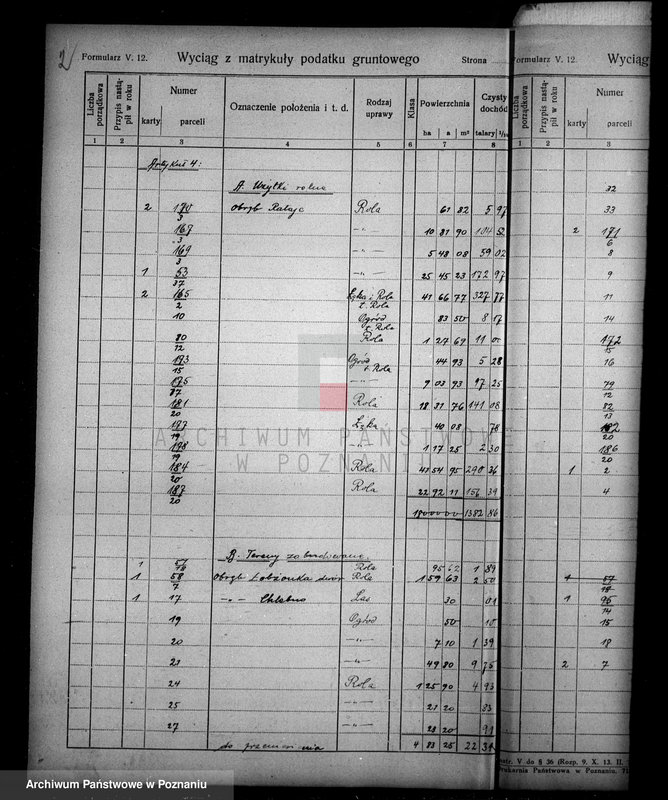 2
Formularz V. 12. Wyciąg z matrykuły podatku gruntowego Strona
Liczba porządkowa Przypis nastąpił w roku Numer Oznaczenie położenia i t. d. Rodzaj uprawy Klasa Powierzchnia Czysty dochód
karty parceli ha a m² talary
1 2 3 4 5 6 7 8
Artykuł 4:
A. Użytki rolne
2 170/3 Obręb Rataje Rola 61 82 5 97
167/3 -"- 10 81 90 104 52
169/3 -"- 5 48 08 59 02
1 53/37 -"- 25 45 23 172 97
2 165/2 Łąka i Rola 41 66 77 327 77
10 Ogród i Rola 83 50 8 17
80/12 Rola 1 27 69 11 00
193/15 Ogród i Rola 44 93 5 28
175/87 -"- 9 03 93 97 25
181/20 Rola 18 31 76 141 08
197/19 Łąka 40 08 78
198/19 -"- 1 17 25 2 30
184/20 Rola 41 54 95 290 36
187/20 Rola 22 92 11 156 39
180 00 00 1382 86
B. Tereny zabudowane
1 Rola 95 62 1 89
1 58/7 Obręb Łobżonka dwór Rola 1 59 63 2 50
1 17 -"- Chlebno Las 30 01
19 Ogród 50 10
20 -"- 7 10 1 39
23 -"- 49 80 9 75
24 Rola 1 25 90 4 93
25 -"- 21 20 83
27 -"- 23 20 91
do przeniesienia 4 83 25 22 31
Formularz V. 12. Wyciąg
Liczba porządkowa Przypis nastąpił w roku Numer
karty parceli
1 2 3
32
33
2 171/6
8
9
11
14
172/15
16
79/12
82/13
182/20
186/20
1 2
4
1 57/18
1 96/14
15
18
2 7
str. V do § 36 (Rozp. 9. X. 13. II.
Drukarnia Państwowa w Poznaniu. 71
ARCHIWUM PAŃSTWOWE
W POZNANIU
Archiwum Państwowe w Poznaniu